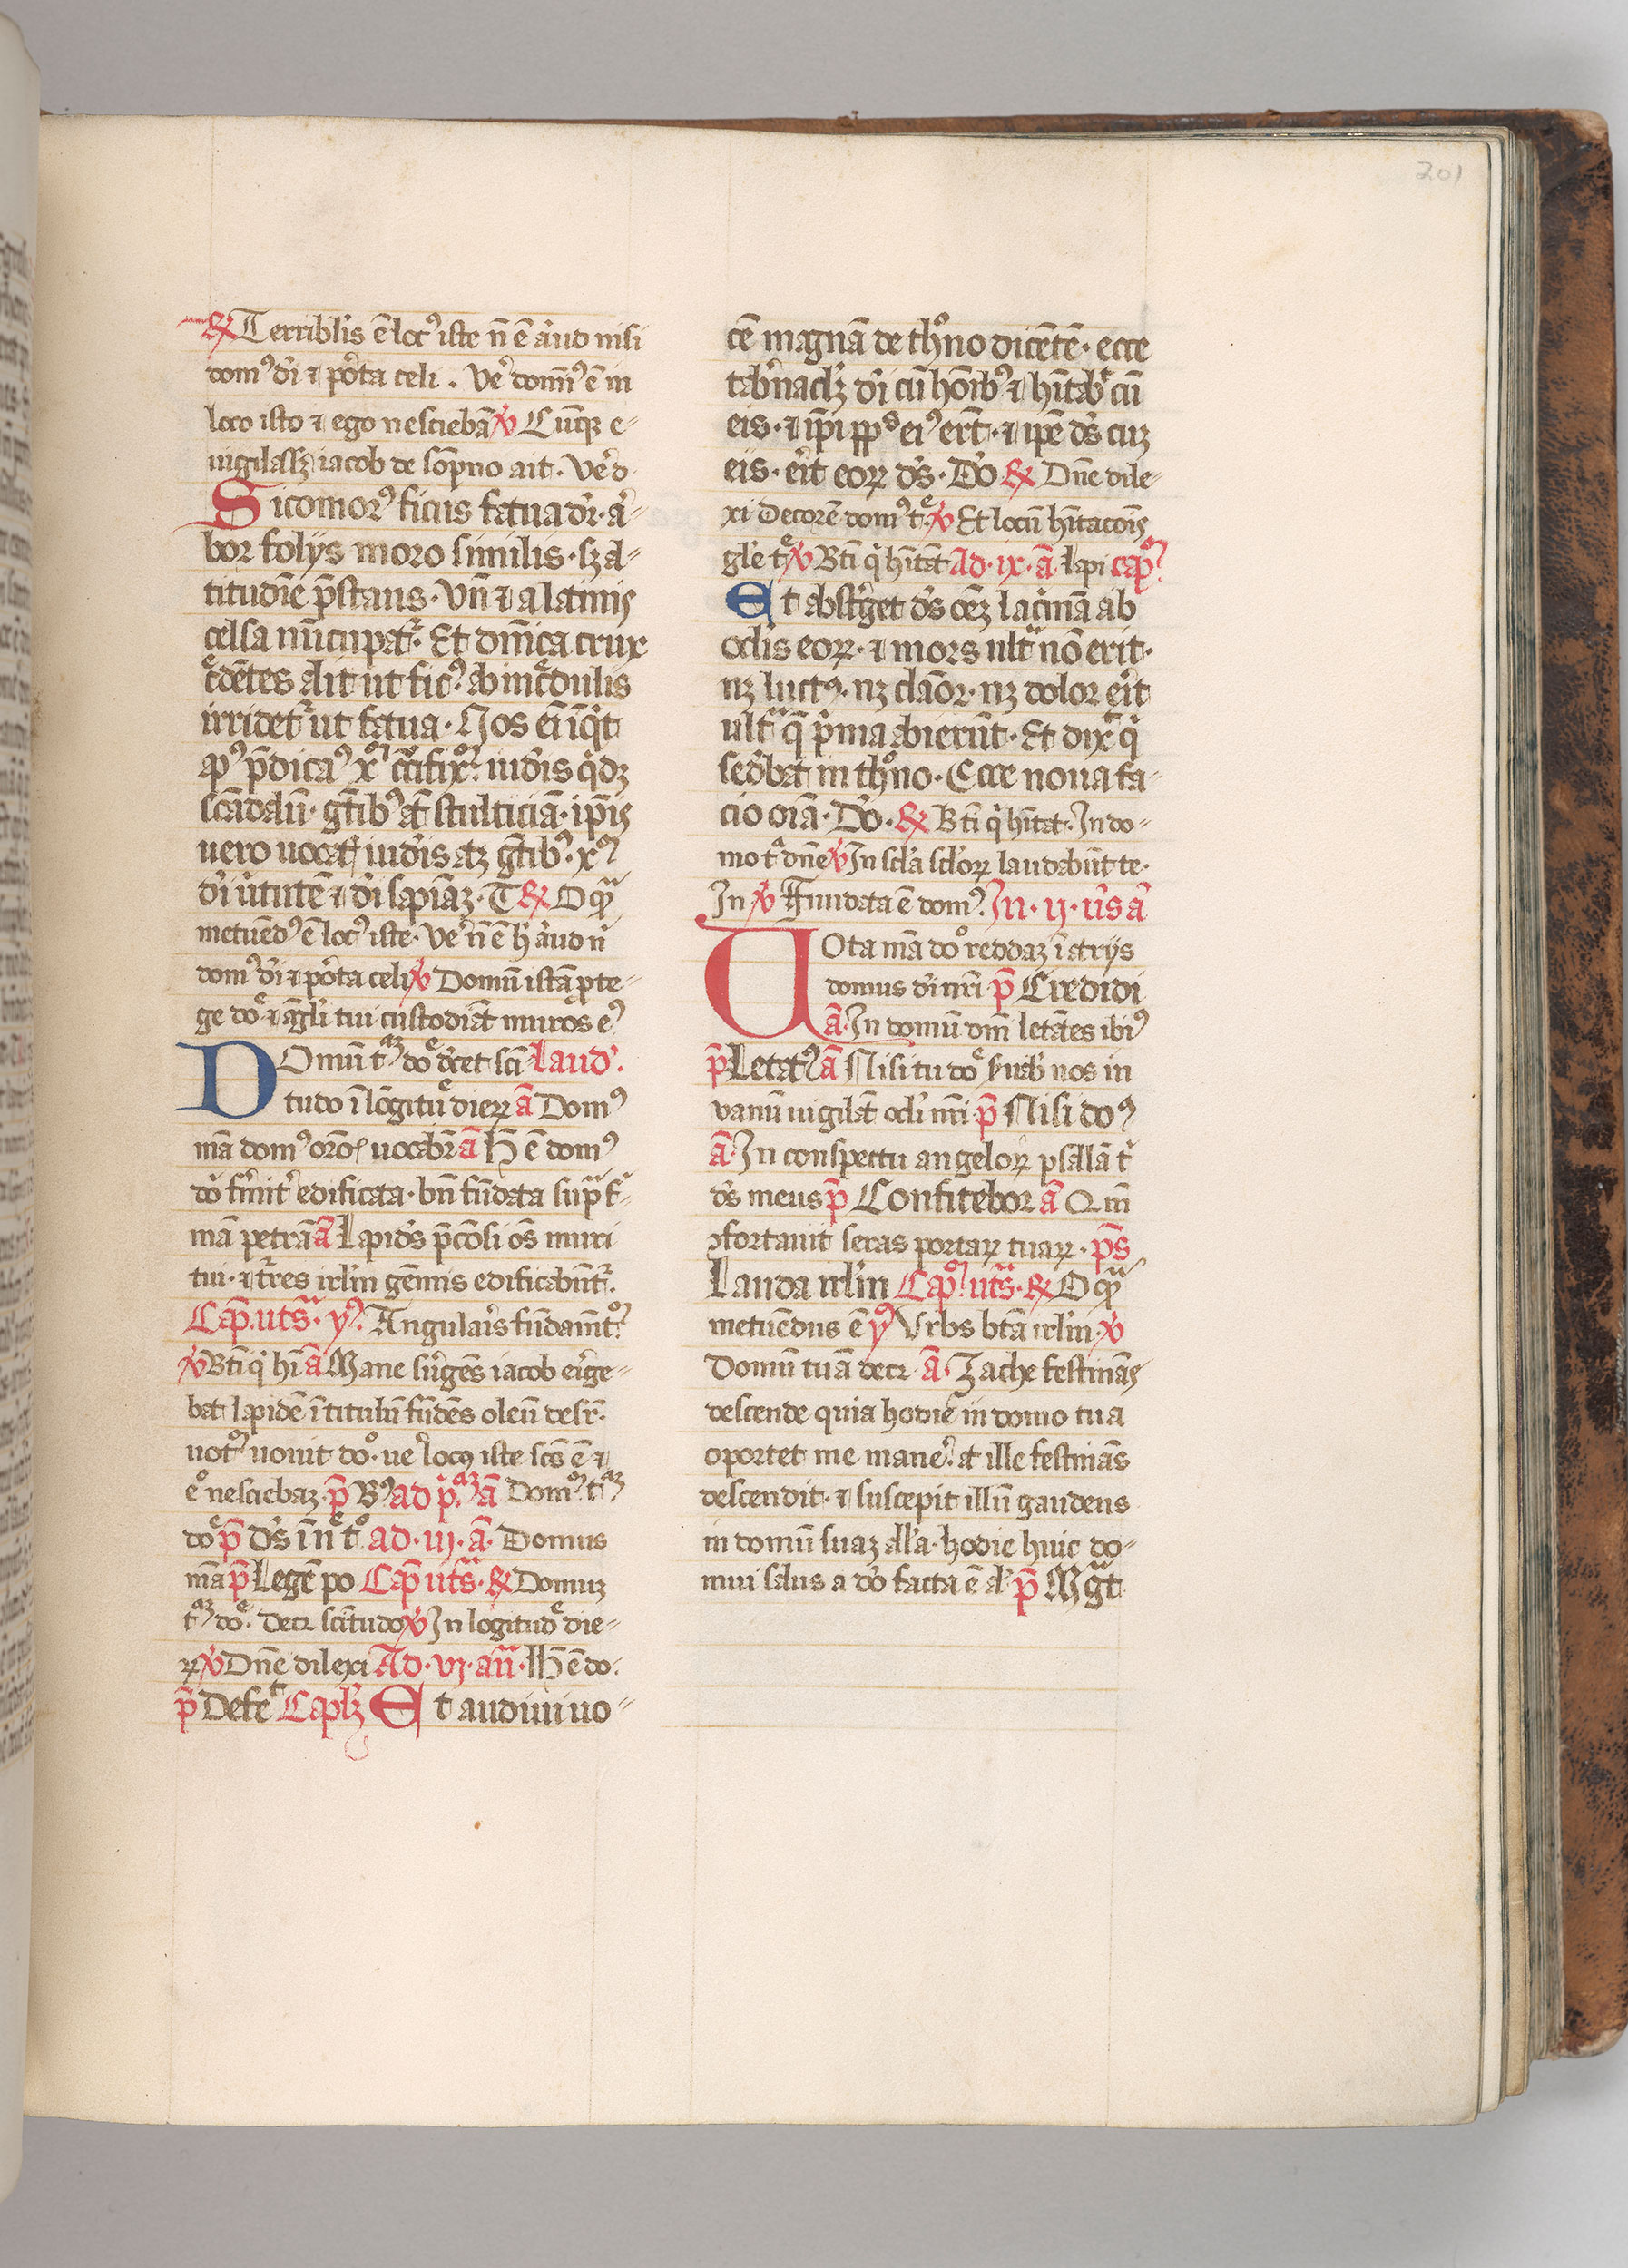 201
℞ Terribl'is ē loc⁹ iste n̄ ē aliud nisi
dom⁹ di ⁊ porta celi . Ver̾ domin⁹ ē in
loco isto ⁊ ego nesciebā ℣ Cūqꝫ e-
uigilassꝫ iacob de sompno ait . Ver̾ d
Sicomor⁹ ficus fatua dr̄ . ar-
bor folijs moro similis . sꝫ al-
titudīe p̄stans . Vn̄ ⁊ a latinis
celsa nūcupat᷑ . Et dn̄ica crux
cͤdētes alit ut fic⁹ . ab incͤdulis
irridet᷑ ut fatua . Nos ei īqͥt
ap⁹ p̄dicam⁹ xp̄m cͥcifixū iudeis qͥdē
scādalū . gētibꝰ at̄ stulticiā . ip̄is
uero uocatis iudeis atqꝫ gētibꝰ . xp̄m
dei uͥtutē ⁊ dei sapiāꝫ . T ℞ O qͣ
metuēd⁹ ē loc⁹ iste . Ver̾ n̄ ē h̾ aliud nͥ
dom⁹ di ⁊ porta celi ℣ Domū istā p̄te-
ge doͤ ⁊ āgl'i tui custodiāt muros e⁹
Domū tͣꝫ doͤ decet sci Laud'.
tudo ī lōgitūͤ dierꝝ ā Dom⁹
mā dom⁹ orōs uocabr̄ ā H̄ ē dom⁹
do firmiter edificata . bn̄ fūdata supͣ fͥ-
mā petrā ā Lapides p̄ciosi oēs muri
tui . ⁊ tͬres irl'm gēmis edificabūt᷑ .
Cap̄ . utsͣ . y⁹ . Angularis fūdamtū
℣ Bti qͥ hi ā Mane surgēs iacob erige-
bat lapidē ī titulū fūdēs oleū desr̄ .
uotū uouit do . uer̾ locꝰ iste scs̄ ē ⁊
eͦ nesciebaꝫ p̄ B⁹ ad pͥͣꝫ ā Domū tͣꝫ
doͤ p̄ ds̄ ī nͤ tͦ ad . iij . ā . Domus
mā p̄ Legē po Cap̄ utsͣ . ℞ Domuꝫ
tͣꝫ doͤ . decꝫ scītudo ℣ In logitudͤ die-
rꝝ ℣ Dn̄e dilexi Ad . vj . an̄ . H̄ ē do .
p̄ Defeͨ Caplꝫ Et audiui uo-
cē magnā de thͦno dicētē . ecce
tab'nacl'ꝫ dei cū hoībꝰ ⁊ hītabͭ cū
eis . ⁊ ip̄i ppl's ei⁹ erūt . ⁊ ip̄e ds̄ cuꝫ
eis . erit eorꝝ ds̄ . Do ℞ Dn̄e dile-
xi decorē dom⁹ tͤ ℣ Et locū hītacōis
gl'e tͤ ℣ Bti qͥ hītāt Ad . ix . ā . lapi capͫ
Et abst'get ds̄ oēꝫ lacͥmā ab
oclis eorꝝ . ⁊ mors ultͣ nō erit .
nꝫ luctꝰ . nꝫ clāor . nꝫ dolor erit
ultͣ q̄ pͥma abierūt . Et dixͭ qͥ
sedebat in thͦno . Ecce noua fa-
cio oīa . Do . ℞ Bti qͥ hītāt . In do-
mo tͣ dn̄e ℣ In scl'a scl'orꝝ laudabūt te .
In ℣ Fundata ē dom⁹ . In . ij . ūs ā
Uota mā do reddaꝫ ī atrijs
domus dn̄i nr̄i p̄ Credidi
ā . In domū dn̄i letātes ibi⁹
p̄ Letat⁹ ā Nisi tu doͤ seruab' nos in
vanū uigilāt ocl'i nr̄i p̄ Nisi do⁹
ā . In conspectu angelorꝝ psallā tͥ
ds̄ meus p̄ Confitebor ā Qm̄
ꝯfortauit seras portarꝝ tuarꝝ . p̄s
Lauda irl'm Capͫ utsͣ . ℞ O qͣ
metuēdus ē y⁹ Vrbs btā irl'm . ℣
Domū tuā decꝫ ā . Zachee festinās
descende quia hodie in domo tua
oportet me manere . at ille festinās
descendit . ⁊ suscepit illū gaudens
in domū suaꝫ all'a . hodie huic do-
mui salus a do facta ē al' p̄ Mgͣt